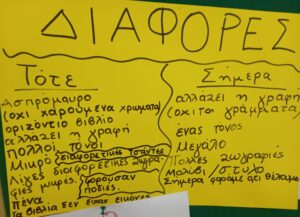 ΔΙΑΦΟΡΕΣ
Τότε
Ασπρόμαυρο
(όχι χαρούμενα χρώματα)
οριζόντιο βιβλίο
αλλάζει η γραφή
Πολλοί τόνοι
Μικρό
διαφορετικές τσάντες
Λίγες διαφορετικές ζωγρα-
φιές
φορούσαν
ποδιές.
Πένα
Τα βιβλία δεν είχαν εικόνες
Σήμερα
αλλάζει η γραφή
(όχι τα γράμματα)
ένας τόνος
Μεγάλο
Πολλές ζωγραφιές
Μολύβι /στυλο
Σήμερα φοράμε ότι θέλουμε